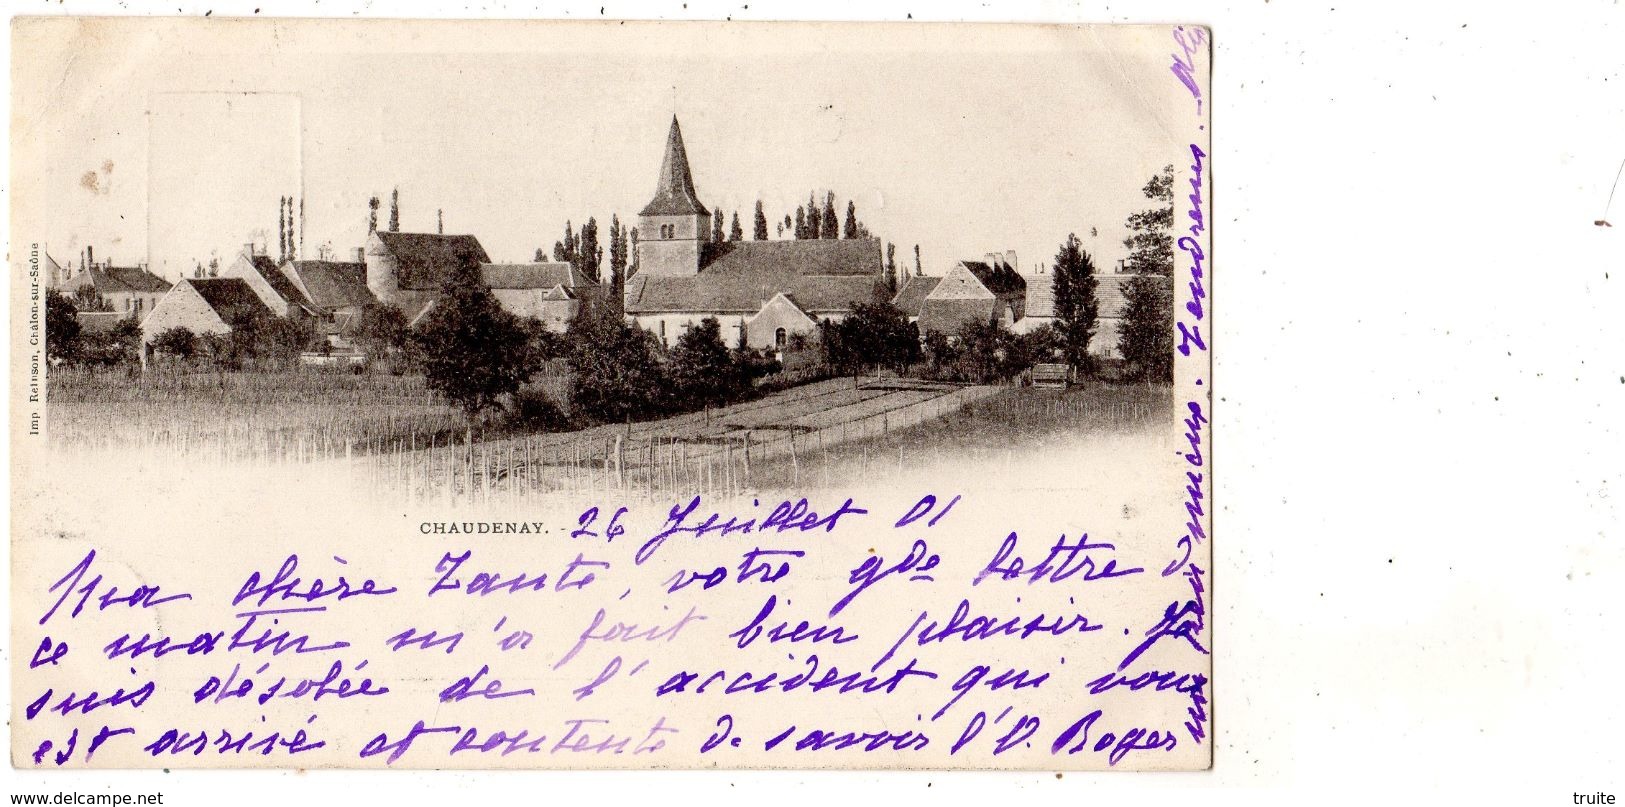 Imp Reinson, Châlon-sur-Saône
CHAUDENAY. - 26 Juillet 01
Ma chère Tante, votre gde lettre d
ce matin m'a fait bien plaisir. Je
suis désolée de l'accident qui vous
est arrivé et contente de savoir l'O. Roger
un peu mieux. Tendrems. - Aly
www.delcampe.net
truite